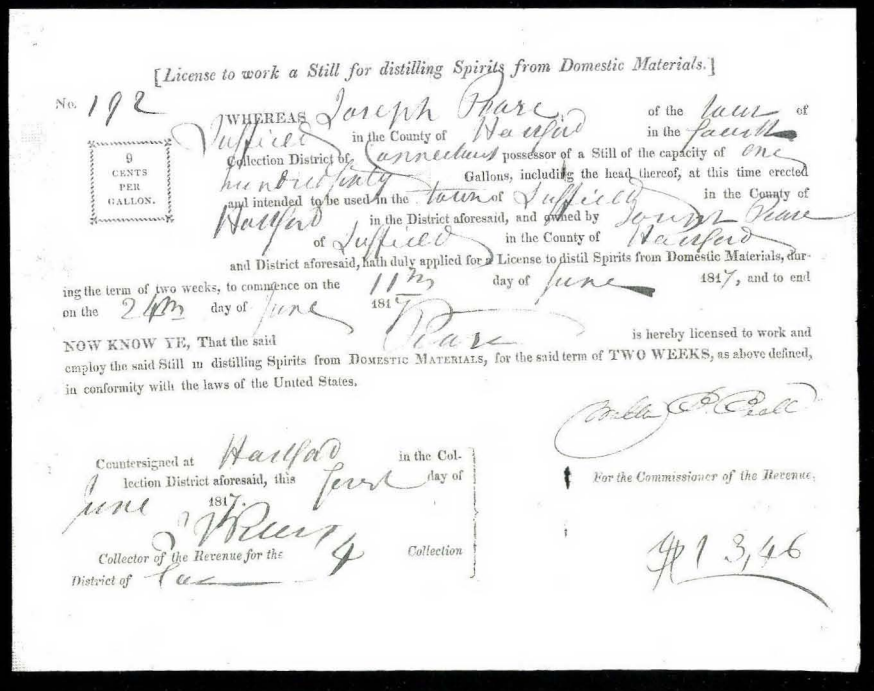 [License to work a Still for distilling Spirits from Domestic Materials.]
No. 192
9
CENTS
PER
GALLON.
WHEREAS Joseph Pease of the town of
Suffield in the County of Hartford in the fourth
Collection District of Connecticut possessor of a Still of the capacity of one
hundred Gallons, including the head thereof, at this time erected
and intended to be used in the town of Suffield in the County of
Hartford in the District aforesaid, and owned by Joseph Pease
of Suffield in the County of Hartford
and District aforesaid, hath duly applied for a License to distil Spirits from Domestic Materials, dur-
ing the term of two weeks, to commence on the 11th day of June 1817, and to end
on the 24th day of June 1817
NOW KNOW YE, That the said Pease is hereby licensed to work and
employ the said Still in distilling Spirits from DOMESTIC MATERIALS, for the said term of TWO WEEKS, as above defined,
in conformity with the laws of the United States.
Countersigned at Hartford in the Col-
lection District aforesaid, this first day of
June 1817.
Collector of the Revenue for the 4 Collection
District of Con
For the Commissioner of the Revenue.
$13,46